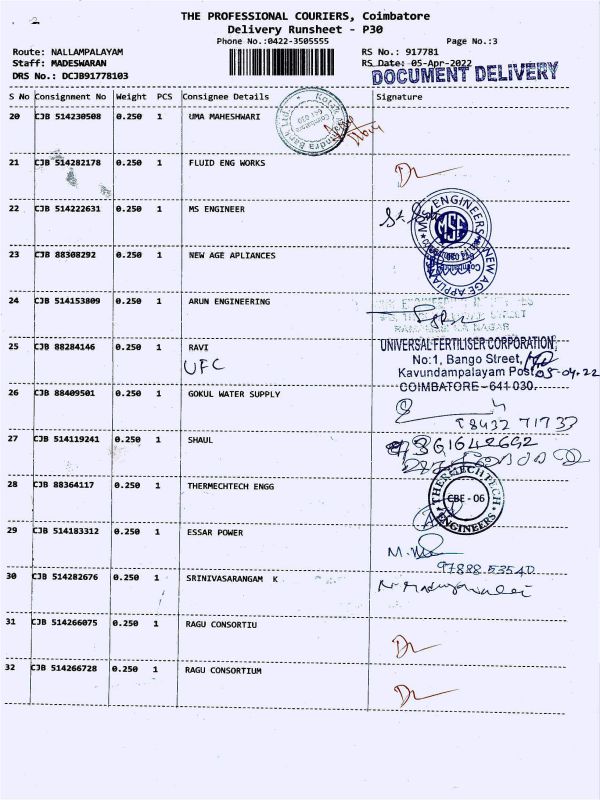 THE PROFESSIONAL COURIERS, Coimbatore
Delivery Runsheet - P30
Phone No.:0422-3505555
Page No.:3
Route: NALLAMPALAYAM
RS No.: 917781
Staff: MADESWARAN
RS Date: 05-Apr-2022
DOCUMENT DELIVERY
DRS No.: DCJB91778103
S No Consignment No Weight PCS Consignee Details Signature
20 CJB 514230508 0.250 1 UMA MAHESHWARI
21 CJB 514282178 0.250 1 FLUID ENG WORKS
22 CJB 514222631 0.250 1 MS ENGINEER
MS ENGINEERS
MSE
23 CJB 88308292 0.250 1 NEW AGE APLIANCES
NEW AGE APPLIANCES
24 CJB 514153809 0.250 1 ARUN ENGINEERING
25 CJB 88284146 0.250 1 RAVI
UFC
UNIVERSAL FERTILISER CORPORATION
No:1, Bango Street,
Kavundampalayam Post
05-04-22
COIMBATORE - 641 030.
26 CJB 88409501 0.250 1 GOKUL WATER SUPPLY
27 CJB 514119241 0.250 1 SHAUL
28 CJB 88364117 0.250 1 THERMECHTECH ENGG
THERMECH TECH
CBE - 06
ENGINEERS
29 CJB 514183312 0.250 1 ESSAR POWER
30 CJB 514282676 0.250 1 SRINIVASARANGAM K
31 CJB 514266075 0.250 1 RAGU CONSORTIU
32 CJB 514266728 0.250 1 RAGU CONSORTIUM